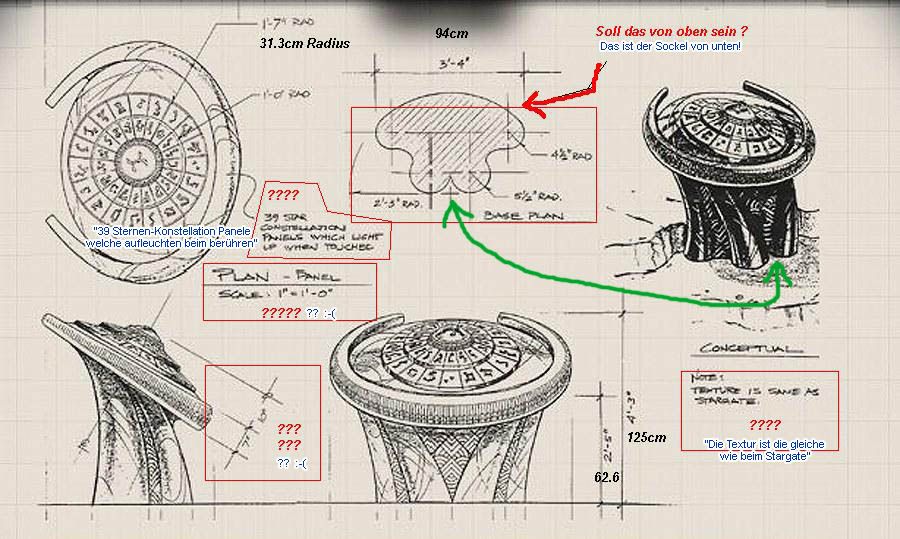 1'-7" RAD
31.3cm Radius
94cm
3'-4"
Soll das von oben sein ?
Das ist der Sockel von unten!
1'-0" RAD
4½" RAD
5½" RAD.
2'-3" RAD.
BASE PLAN
????
39 STAR
CONSTELLATION
PANELS WHICH LIGHT
UP WHEN TOUCHED
"39 Sternen-Konstellation Panele
welche aufleuchten beim berühren"
PLAN - PANEL
SCALE: 1" = 1'-0"
????? ?? :-(
CONCEPTUAL
NOTE:
TEXTURE IS SAME AS
STARGATE.
????
"Die Textur ist die gleiche
wie beim Stargate"
???
???
?? :-(
4'-3"
125cm
62.6